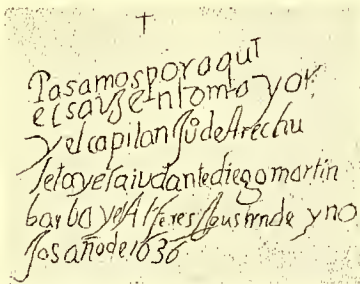 Pasamos por aqui
el sarge nto mayor
y el capitan Ju de Arechu
leta y el aiudante diego martin
barba y el Alferes
Jos año de 1636